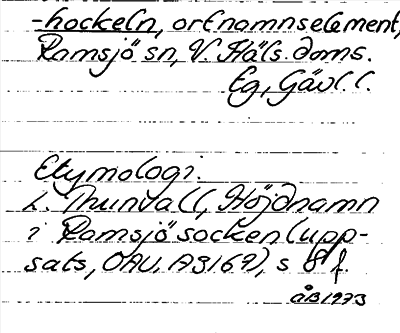 -hockeln, ortnamnselement,
Ramsjö sn, V. Häls. doms.
Eg, Gävl. l.
Etymologi.
L. Thunvall, Höjdnamn
i Ramsjö socken (upp-
sats, OAU. A3169), s 8 f.
ÅB 1973